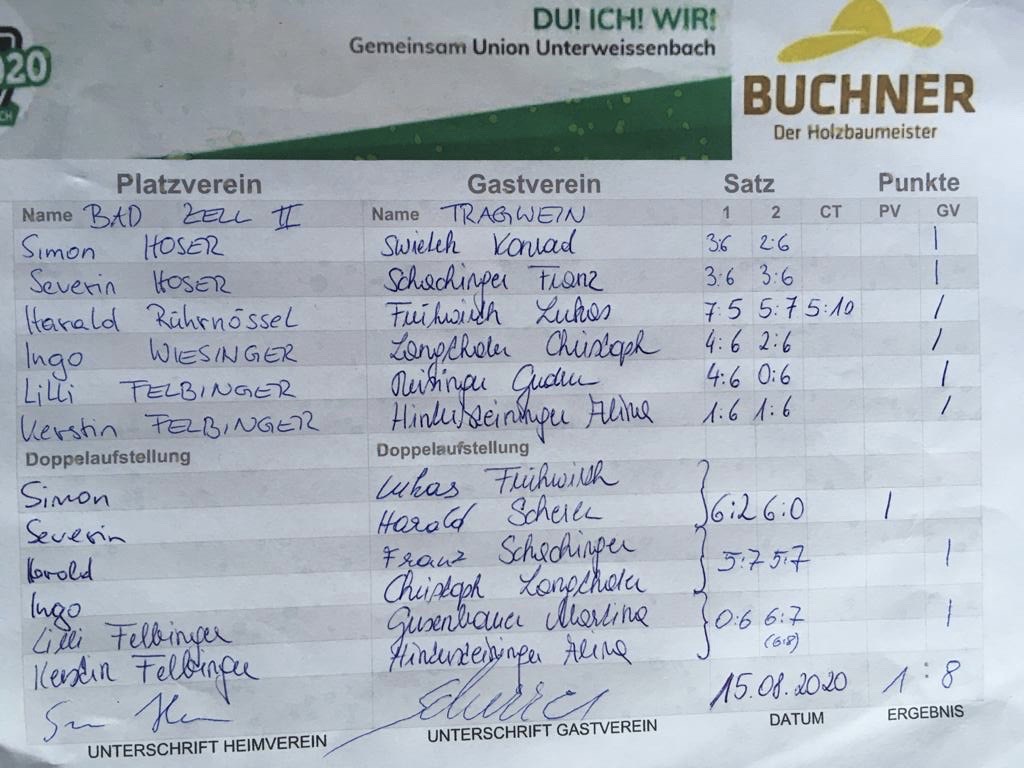 020
CH
DU! ICH! WIR!
Gemeinsam Union Unterweissenbach
BUCHNER
Der Holzbaumeister
Platzverein Gastverein Satz Punkte
Name BAD ZELL II Name TRAGWEIN 1 2 CT PV GV
Simon HOSER Konrad 3:6 2:6 |
Severin HOSER Schachinger Franz 3:6 3:6 |
Harald Rührnössel Frühwirth Lukas 7:5 5:7 5:10 |
Ingo WIESINGER Langthaler Christoph 4:6 2:6 |
Lilli FELBINGER 4:6 0:6 |
Kerstin FELBINGER Hintersteininger Alina 1:6 1:6 |
Doppelaufstellung Doppelaufstellung
Simon Lukas Frühwirth
Severin Harald Scherer 6:2 6:0 |
Harold Franz Schachinger
Ingo Christoph Langthaler 5:7 5:7 |
Lilli Felbinger Gusenbauer Martina 0:6 6:7 |
(6:8)
Kerstin Felbinger Hintersteininger Alina
15.08.2020 1:8
UNTERSCHRIFT HEIMVEREIN UNTERSCHRIFT GASTVEREIN DATUM ERGEBNIS